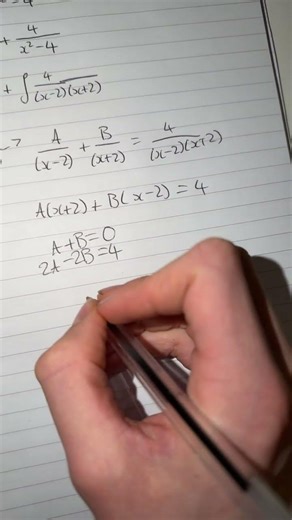 + 4/(x²-4)
+ ∫ 4/((x-2)(x+2))
-> A/(x-2) + B/(x+2) = 4/((x-2)(x+2))
A(x+2) + B(x-2) = 4
A+B=0
2A-2B=4